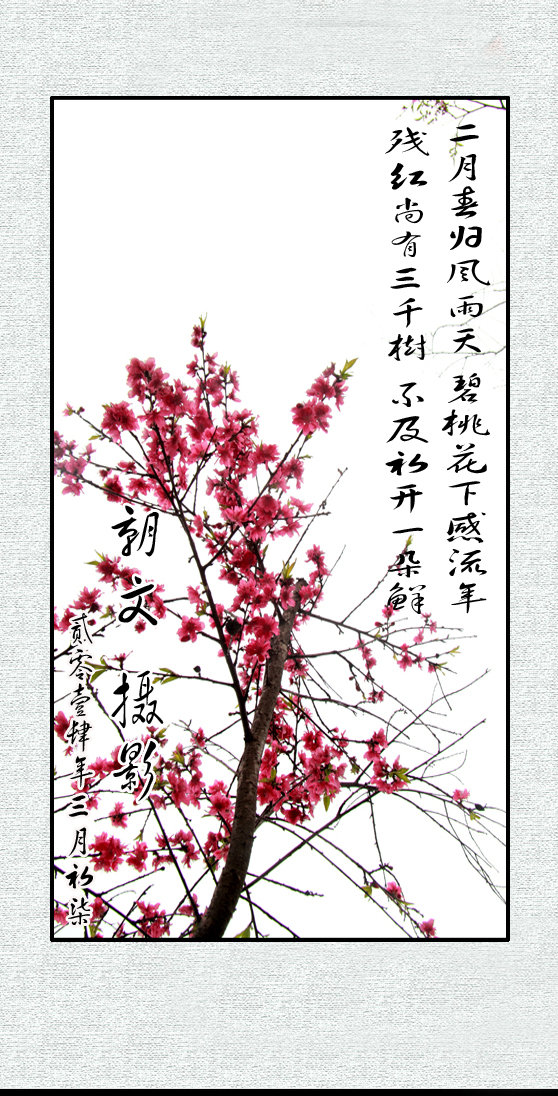 二月春归风雨天 碧桃花下感流年
残红尚有三千樹 不及初开一朵鲜
朝文 摄影
贰零壹肆年三月初柒